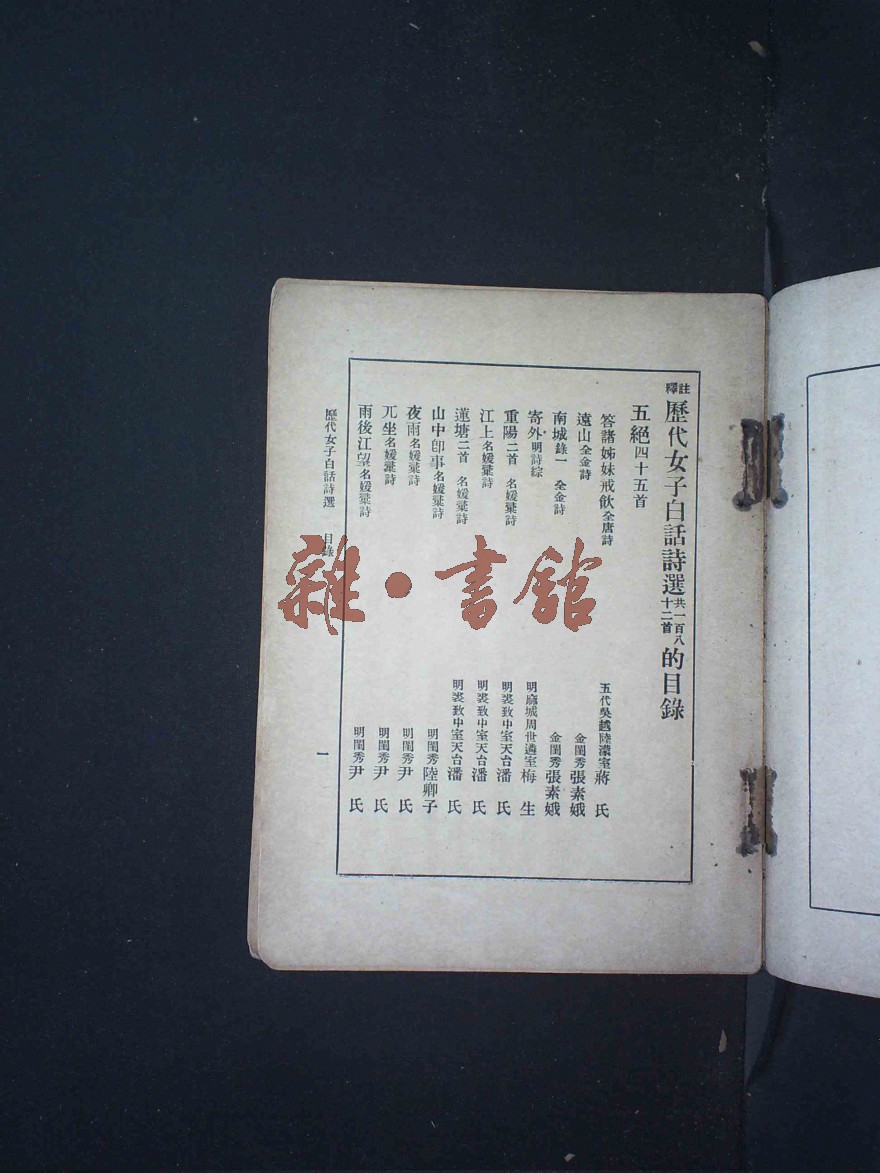 註釋歷代女子白話詩選共一百八十二首的目錄
五絕四十五首
答諸姊妹戒飲全唐詩 五代吳越陸濛室蔣氏
遠山全金詩 金閨秀張素娥
南城錄一 全金詩 金閨秀張素娥
寄外明詩綜 明麻城周世遴室梅生
重陽二首 名媛彙詩 明裘致中室天台潘氏
江上名媛彙詩 明裘致中室天台潘氏
蓮塘二首 名媛彙詩 明裘致中室天台潘氏
山中卽事名媛彙詩 明閨秀陸卿子
夜雨名媛彙詩 明閨秀尹氏
兀坐名媛彙詩 明閨秀尹氏
雨後江望名媛彙詩 明閨秀尹氏
歷代女子白話詩選 目錄 一
雜·書館